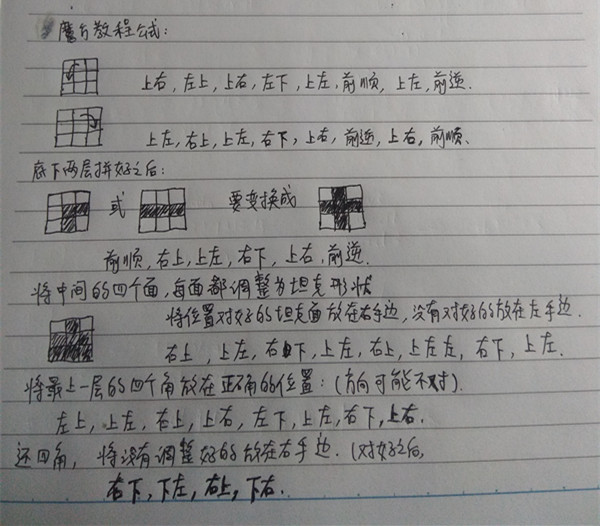 魔方教程公式:
上右,左上,上右,左下,上左,前顺,上左,前逆.
上左,右上,上左,右下,上右,前逆,上右,前顺、
底下两层拼好之后:
或 要变换成
前顺,右上,上左,右下,上右,前逆.
将中间的四个面,每面都调整为坦克形状
将位置对好的坦克面放在右手边,没有对好的放在左手边.
右上,上左,右下,上左,右上,上左左,右下,上左.
将最上一层的四个角放在正确的位置:(方向可能不对).
左上,上左,右上,上右,左下,上左,右下,上右.
还四角,将没有调整好的放在右手边.(对好之后,
右下,下左,右上,下右.